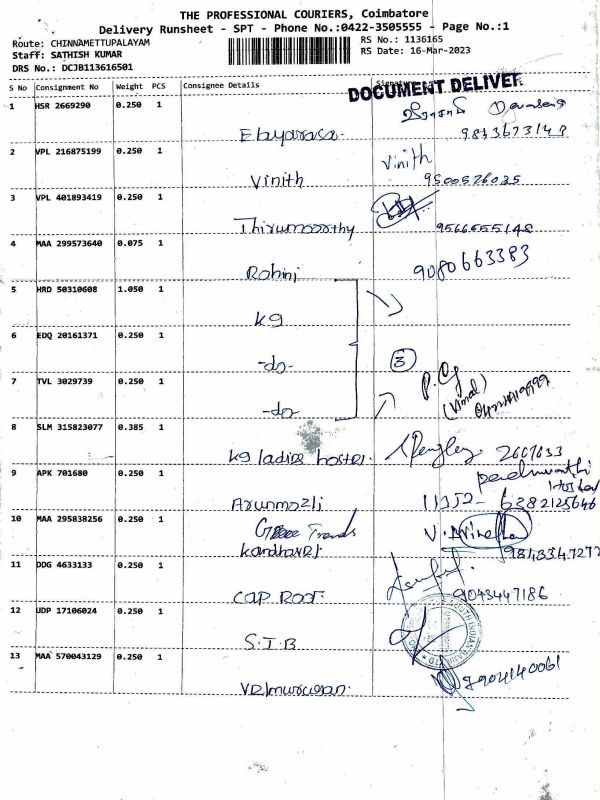 THE PROFESSIONAL COURIERS, Coimbatore
Delivery Runsheet - SPT - Phone No.:0422-3505555 - Page No.:1
Route: CHINNAMETTUPALAYAM
RS No.: 1136165
Staff: SATHISH KUMAR
RS Date: 16-Mar-2023
DRS No.: DCJB113616501
S No Consignment No Weight PCS Consignee Details Signature
DOCUMENT DELIVER
1 HSR 2669290 0.250 1
Elayarasa.
2 VPL 216875199 0.250 1 Vinith
Vinith 9500526035
3 VPL 401893419 0.250 1
Thirumoorthy 9566555148
4 MAA 299573640 0.075 1
Rohini 9080663383
5 HRD 50310608 1.050 1
kg
6 EDQ 20161371 0.250 1
-do- 3
7 TVL 3029739 0.250 1
-do- (Vimal)
8 SLM 315823077 0.385 1
kg ladies hostel.
9 APK 701680 0.250 1
Arunmozli 6382125646
10 MAA 295838256 0.250 1 Trends
11 DDG 4633133 0.250 1
CAP Roof 9043447186
12 UDP 17106024 0.250 1
S.I.B
13 MAA 570043129 0.250 1
VRMurugan